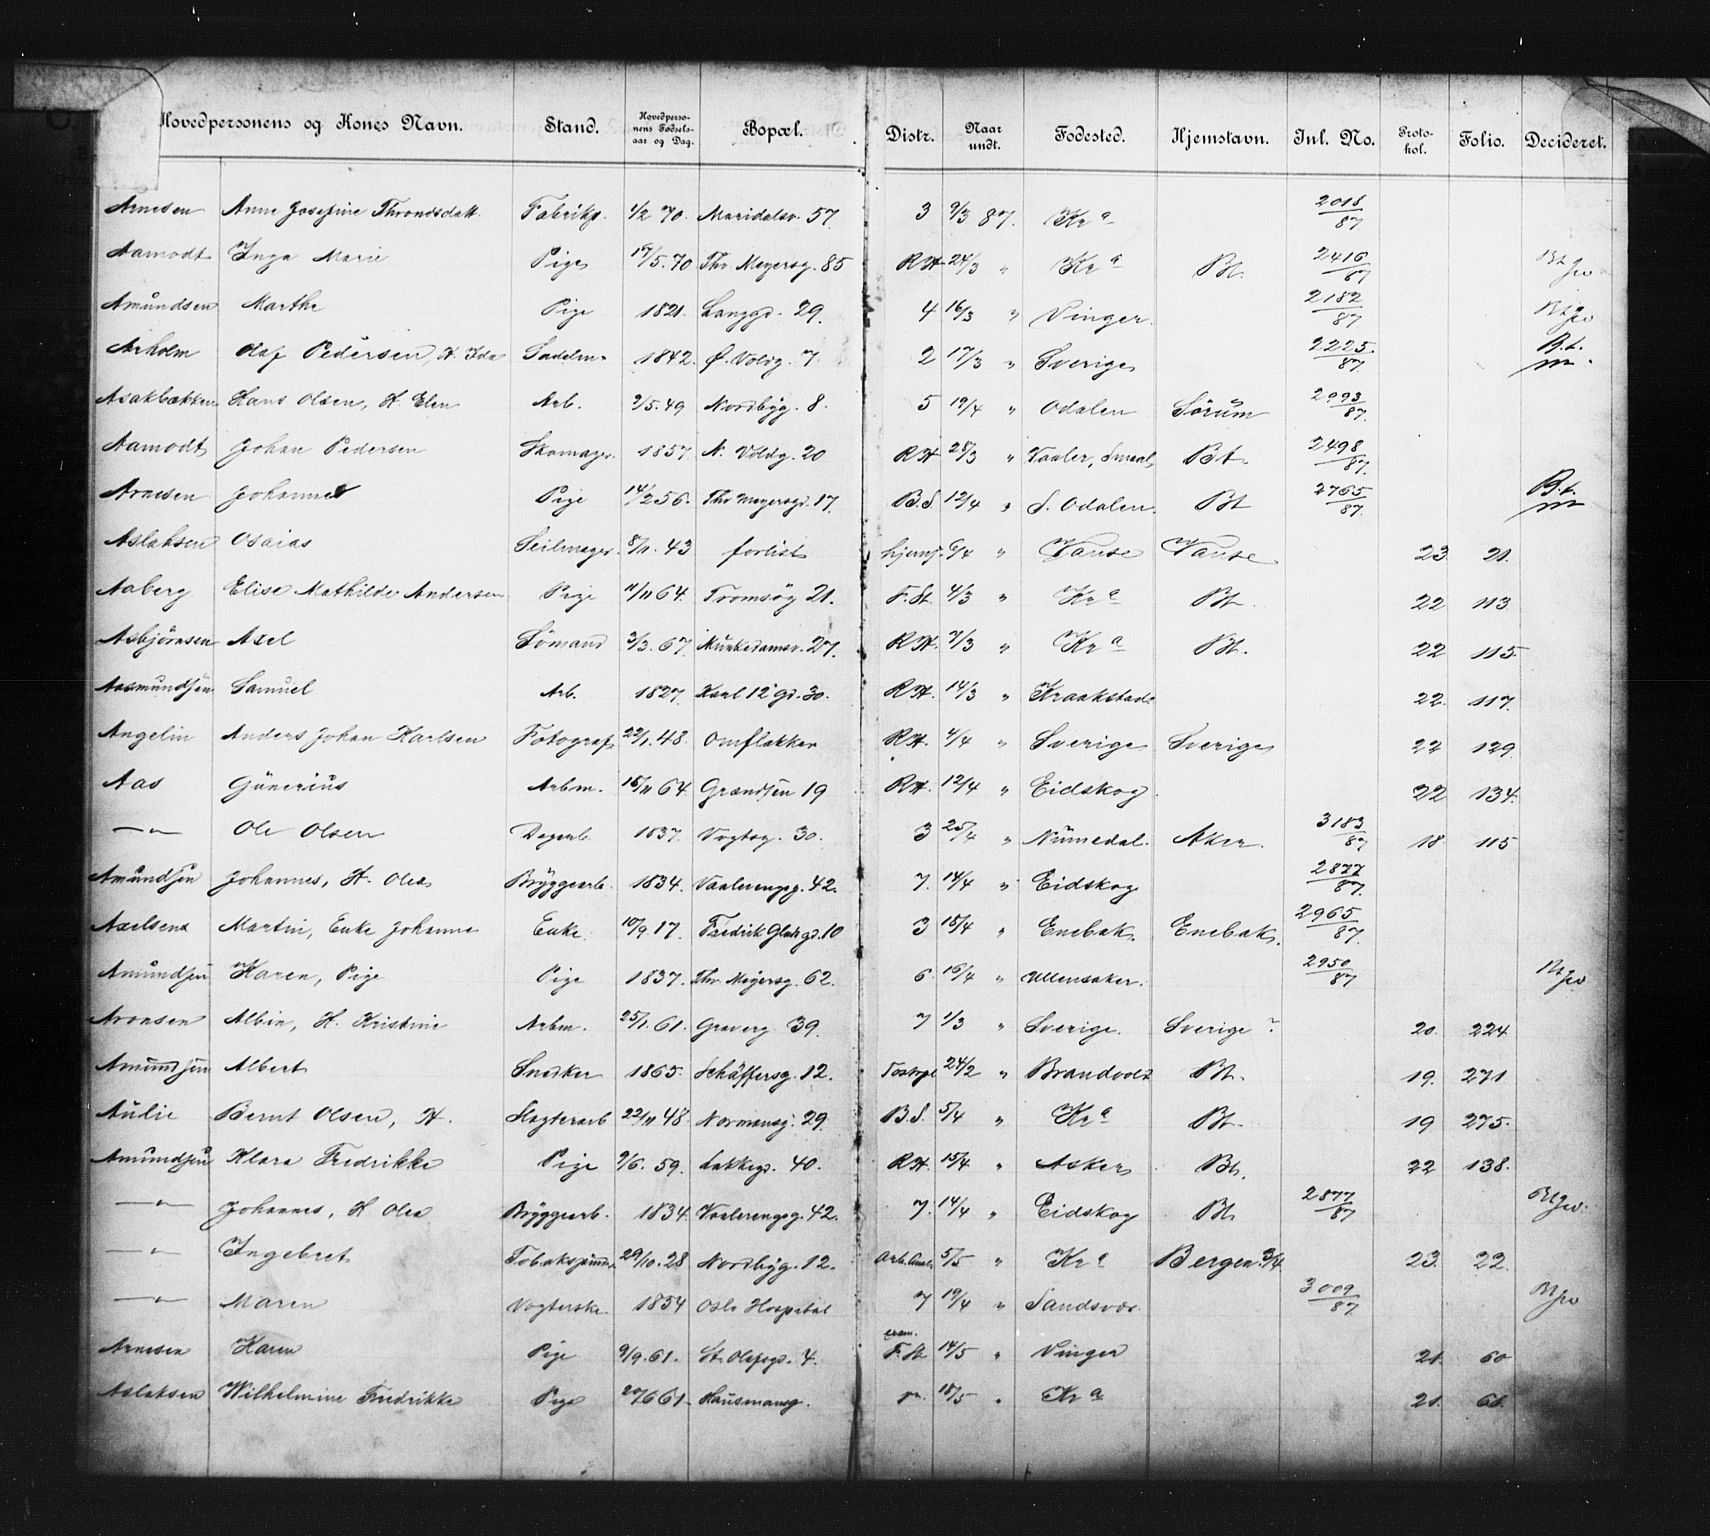 Hovedpersonens og Kones Navn. Stand. Hovedpersonens Fødselsaar og Dag. Bopæl. Distr. Naar undt. Fødested. Hjemstavn. Inl. No. Protokol. Folio. Decideret.
Arnesen Anne Josefine Throndsdatt. Fabrikp. 1/2 70. Maridalsv. 57. 3 9/3 87. Kra 2018/87
Aamodt Inga Marie Pige 17/5.70 Thv Meyersg. 85 RH 24/3 " Kra Bt. 2416/87
Amundsen Marthe Pige 1821. Langgd. 29. 4 16/3 " Vinger. 2182/87
Arholm Olaf Pedersen, H. Ida Sadelm. 1842. Ø. Voldg. 7 2 17/3 " Sverige 2225/87 B.t.
Asakbækken Hans Olsen, H. Elen Arb. 2/5.49 Nordbyg. 8. 5 19/4 " Odalen Sørum 2993/87.
Aamodt Johan Pedersen Skomager. 1857. N. Voldg. 20 RH 28/3 " Vaaler, Smaal. Bt. 2498/87.
Arnesen Johanne Pige 14/2 56. Thv Meyersgd. 17. B.S. 12/4 " S. Odalen. Bt 2765/87. B.t.
Aslaksen Osaias Seilmager. 8/11. 43 forlist hjemf. 6/4 " Vanse Vanse 23. 21.
Aaberg Elise Mathilde Andersen Pige 11/11 64. Tromsøg 21. F.St. 4/3 " Kra Bt. 22 113
Asbjørnsen Axel Sømand 3/3. 67. Munkedamsv. 27. RH. 7/3 " Kra Bt. 22 115.
Aasmundsen Samuel Arb. 1827. Karl 12 gd. 30. RH. 14/3 " Kraakstad 22. 117.
Angelin Anders Johan Karlsen Fotograf 22/1.48. Omflakker RH. 4/4 " Sverige Sverige 22 129.
Aas Gunerius Arbm. 15/11 64. Grændsen 19 RH. 12/4 " Eidskog. 22 134.
—"— Ole Olsen Dagarb. 1837. Vogtsg. 30. 3 25/4 " Numedal. Aker. 3183/87 18. 115
Amundsen Johannes, H. Olea Bryggearb. 1834. Vaalerengsg. 42. 7. 14/4 " Eidskog 2877/87.
Axelsen Martin, Enke Johanne Enke. 10/9.17. Fredrik Gladsgd. 10 3 15/4 " Enebak. Enebak. 2965/87.
Amundsen Karen, Pige Pige 1837. Thv Meyersg. 62. 6. 16/4 " Ullensaker. 2950/87
Aronsen Albin, H. Kristine Arbm. 25/1. 61. Graverg 39. 7 1/3 " Sverige. Sverige? 20. 224
Amundsen Albert Snedker 1865. Schäffersg. 12. 24/2 " Brandvold Bt. 19. 271
Aulie Bernt Olsen, H. Slagterarb 22/11 48. Normansg. 29. B.S. 5/4 " Kra Bt. 19 275.
Amundsen Klara Fredrikke Pige 2/6. 59. Lakkegd. 40. RH. 15/4 " Asker Bt. 22 138.
—"— Johannes, H Olea Bryggearb. 1834. Vaalerengsg. 42. 7. 14/4 " Eidskog Bt 2877/87
—"— Ingebret Tobakspind. 29/10.28 Nordbyg. 12. Arb.Anst. 5/5 " Kra Bergen. 3/4 23. 22.
—"— Maren Vogterske 1854 Oslo Hospital 7 19/4 " Sandsvær. 3009/87.
Arnesen Karen Pige 9/9.61. St. Olafsgd. 4. F. St 14/5 " Vinger 21. 60
Aslaksen Wilhelmine Fredrikke Pige 20/6 61. Hausmansg. 18/5 " Kra 21. 61.